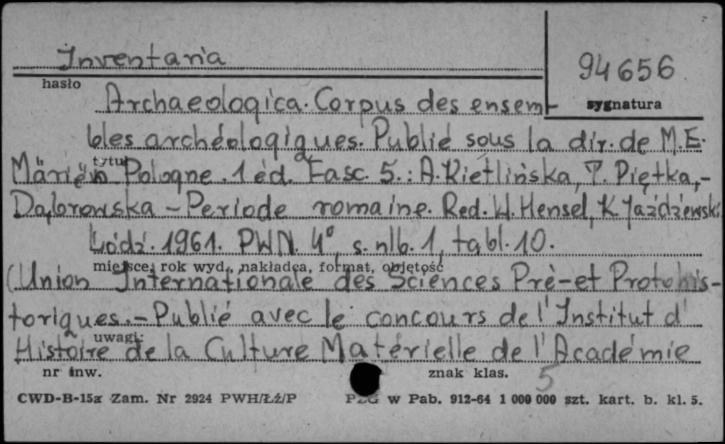 Inventaria
94656
hasło
sygnatura
Archaeologica. Corpus des ensem-
bles archéologiques. Publié sous la dir. de M.E.
tytuł
Märiën Pologne. 1 éd. Fasc. 5.: A. Kietlińska, T. Piętka,-
Dąbrowska - Période romaine. Red. W. Hensel, K. Jażdżewski.
Łódź. 1961. PWN. 4°, s. nlb. 1, tabl. 10.
miejsce, rok wyd., nakładca, format, objętość
(Union Internationale des Sciences Pré-et Protohis-
toriques. - Publié avec le concours de l'Institut d'
uwagi:
Histoire de la Culture Matérielle de l'Académie
nr inw.
znak klas.
5
CWD-B-15a Zam. Nr 2924 PWH/Łź/P
PZG w Pab. 912-64 1 000 000 szt. kart. b. kl. 5.